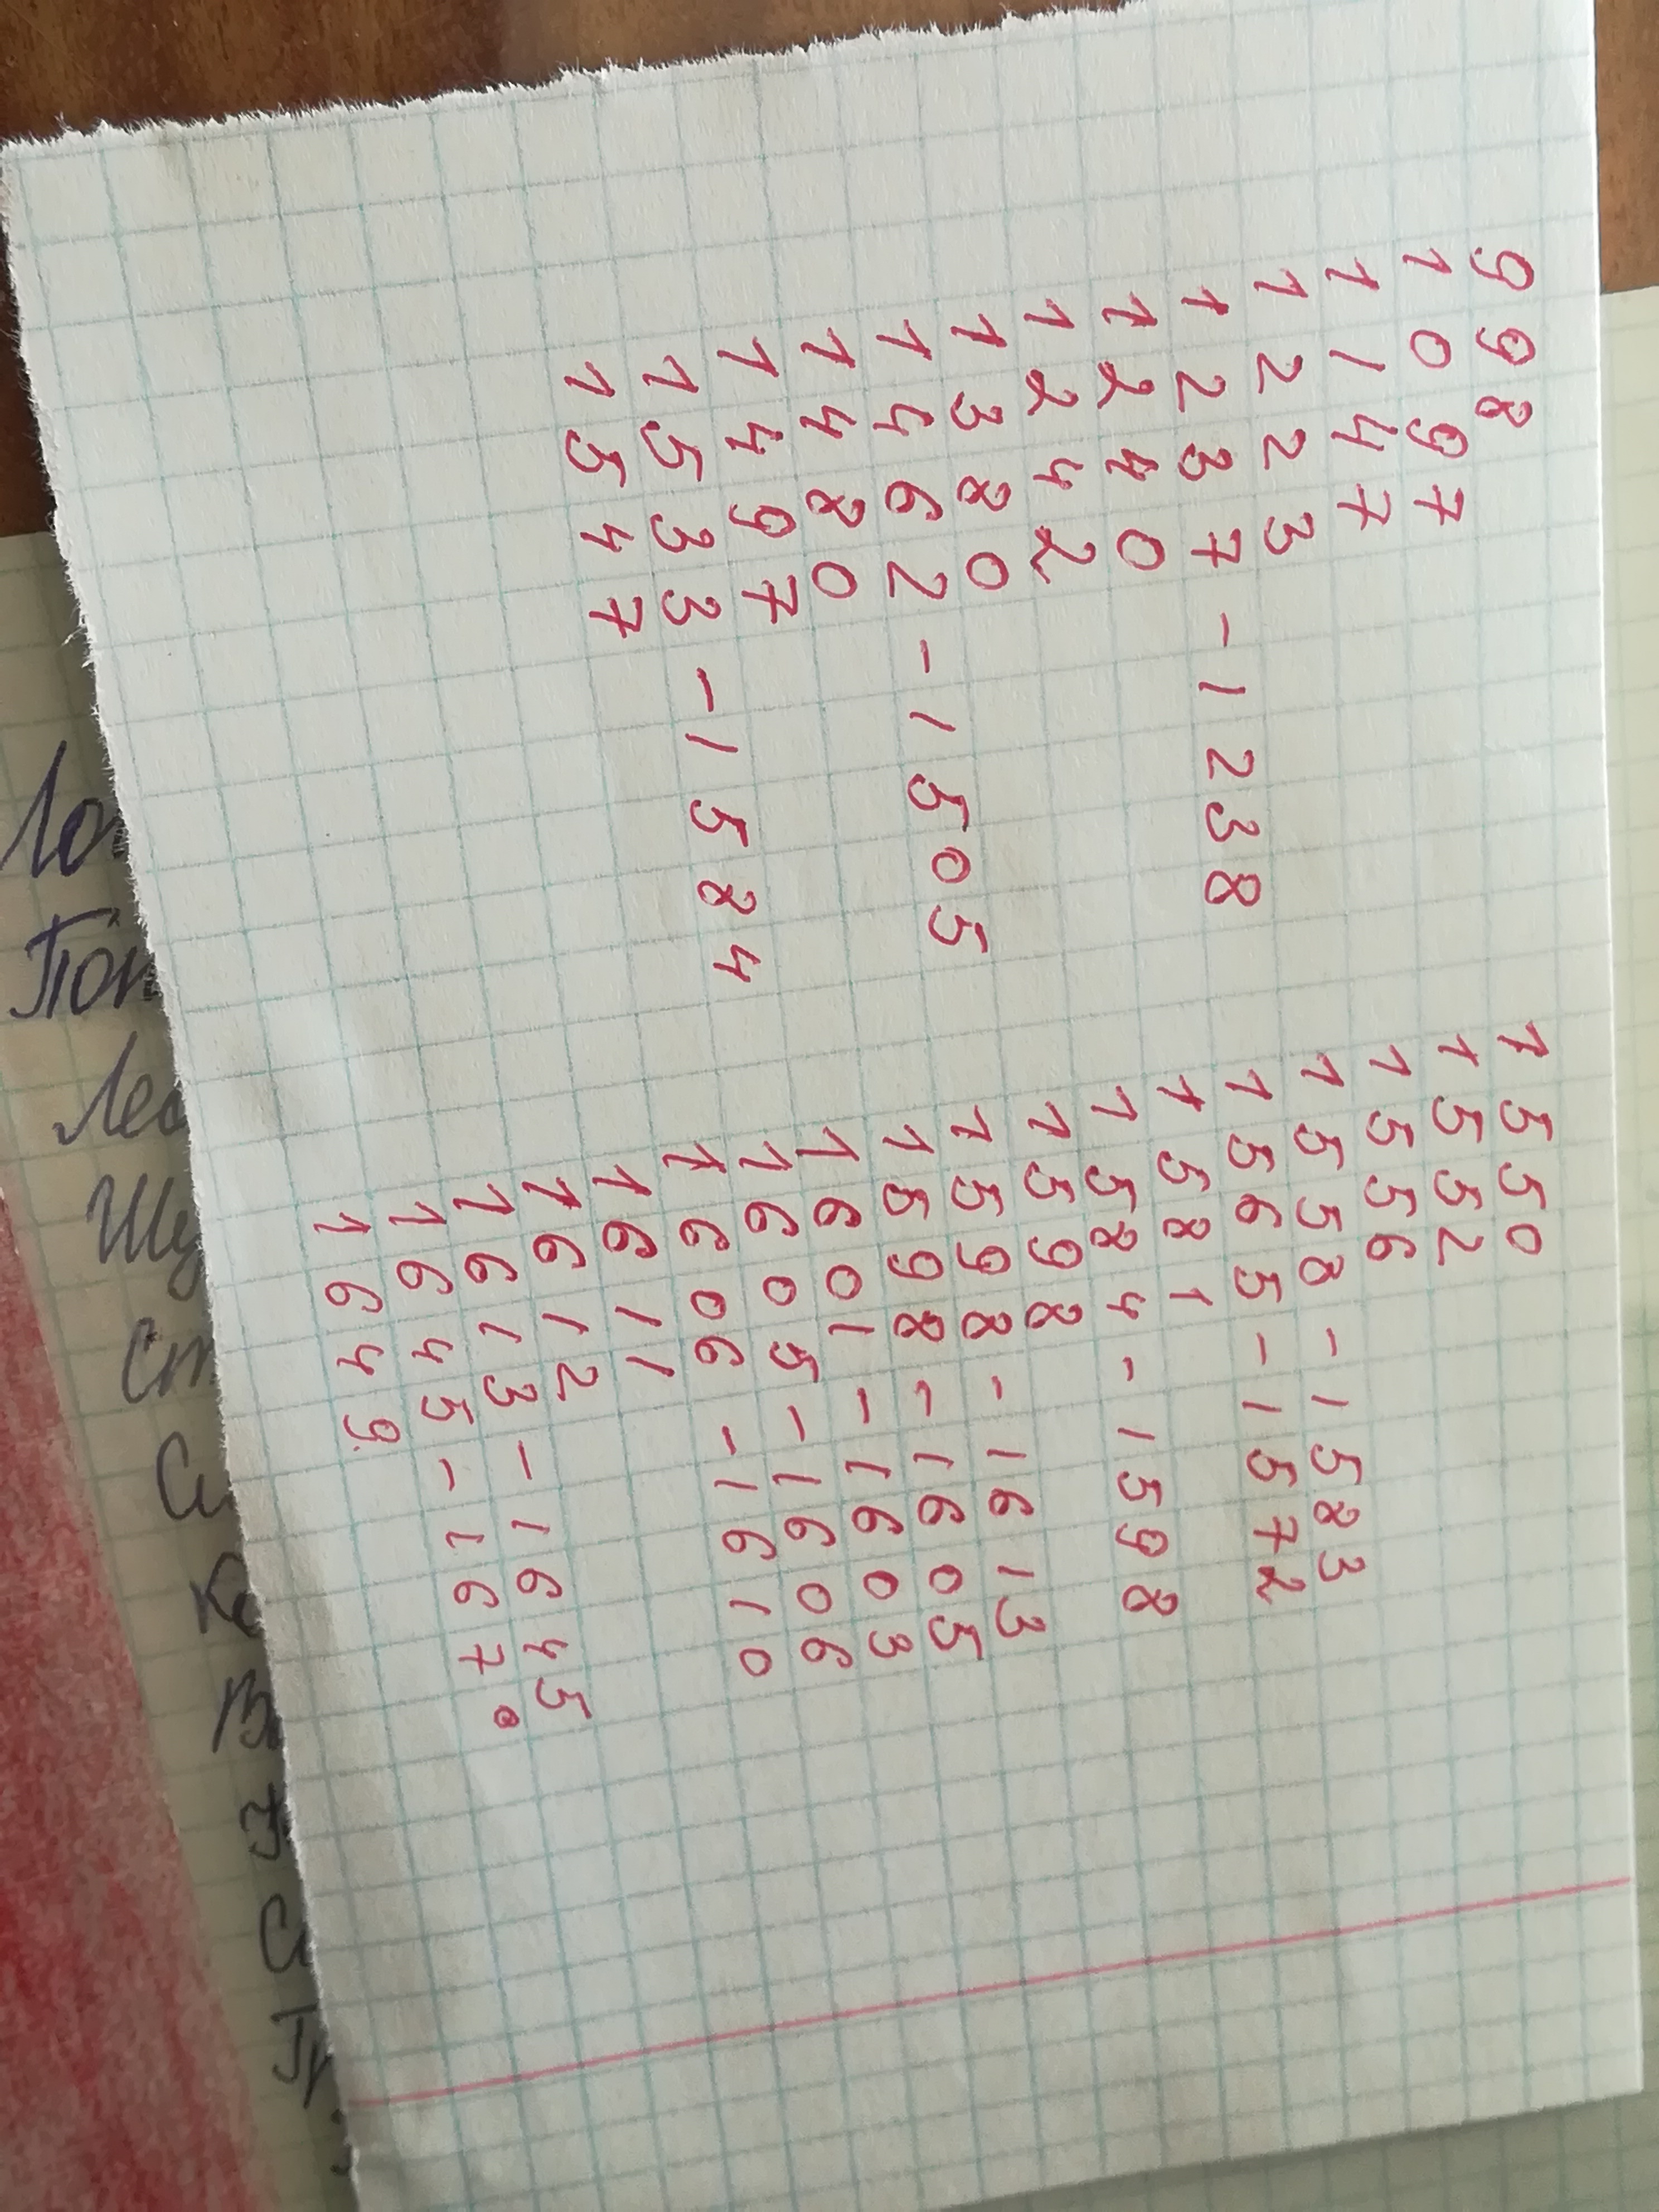 998
1097
1147
1223
1237 - 1238
1240
1242
1380
1462 - 1505
1480
1497
1533 - 1584
1547
1550
1552
1556
1558 - 1583
1565 - 1572
1581
1584 - 1598
1598
1598 - 1613
1598 - 1605
1601 - 1603
1605 - 1606
1606 - 1610
1611
1612
1613 - 1645
1645 - 1670
1649